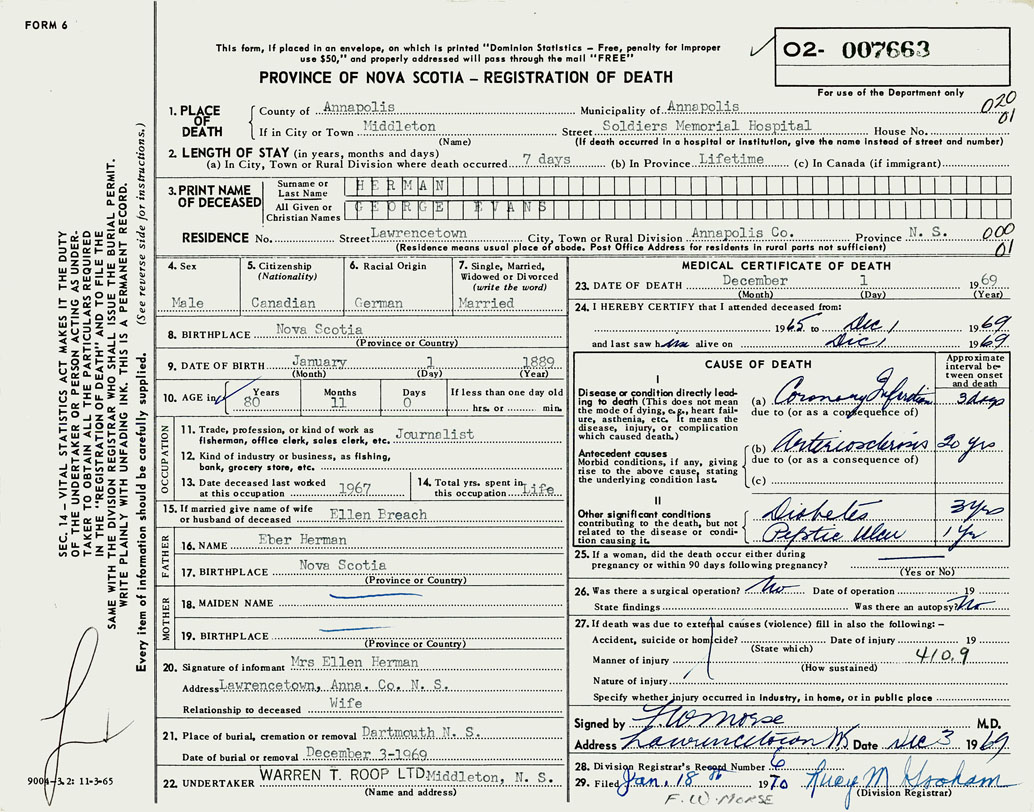 FORM 6
This form, if placed in an envelope, on which is printed "Dominion Statistics – Free, penalty for improper
use $50," and properly addressed will pass through the mail "FREE"
PROVINCE OF NOVA SCOTIA – REGISTRATION OF DEATH
02- 007663
For use of the Department only
020
01
1. PLACE OF DEATH
County of Annapolis Municipality of Annapolis
If in City or Town Middleton Street Soldiers Memorial Hospital House No.
(Name) (If death occurred in a hospital or institution, give the name instead of street and number)
2. LENGTH OF STAY (in years, months and days)
(a) In City, Town or Rural Division where death occurred 7 days (b) In Province Lifetime (c) In Canada (if immigrant)
3. PRINT NAME OF DECEASED
Surname or Last Name HERMAN
All Given or Christian Names GEORGE EVANS
RESIDENCE No. Street Lawrencetown City, Town or Rural Division Annapolis Co. Province N. S.
(Residence means usual place of abode. Post Office Address for residents in rural parts not sufficient)
000
01
4. Sex
Male
5. Citizenship
(Nationality)
Canadian
6. Racial Origin
German
7. Single, Married,
Widowed or Divorced
(write the word)
Married
8. BIRTHPLACE Nova Scotia
(Province or Country)
9. DATE OF BIRTH January 1 1889
(Month) (Day) (Year)
10. AGE in Years Months Days If less than one day old
80 11 0 hrs. or min.
OCCUPATION
11. Trade, profession or kind of work as
fisherman, office clerk, sales clerk, etc. Journalist
12. Kind of industry or business, as fishing,
bank, grocery store, etc.
13. Date deceased last worked
at this occupation 1967
14. Total yrs. spent in
this occupation Life
15. If married give name of wife
or husband of deceased Ellen Breach
FATHER
16. NAME Eber Herman
17. BIRTHPLACE Nova Scotia
(Province or Country)
MOTHER
18. MAIDEN NAME
19. BIRTHPLACE
(Province or Country)
20. Signature of informant Mrs Ellen Herman
Address Lawrencetown, Anna. Co. N. S.
Relationship to deceased Wife
21. Place of burial, cremation or removal Dartmouth N. S.
Date of burial or removal December 3-1969
22. UNDERTAKER WARREN T. ROOP LTD Middleton, N. S.
(Name and address)
MEDICAL CERTIFICATE OF DEATH
23. DATE OF DEATH December 1 1969
(Month) (Day) (Year)
24. I HEREBY CERTIFY that I attended deceased from:
1965 to Dec 1 1969
and last saw him alive on Dec 1 1969
CAUSE OF DEATH
Approximate interval between onset and death
I
Disease or condition directly leading
to death (This does not mean
the mode of dying, e.g., heart failure,
asthenia, etc. It means the
disease, injury, or complication
which caused death.)
(a) Coronary Infarction 3 days
due to (or as a consequence of)
Antecedent causes
Morbid conditions, if any, giving
rise to the above cause, stating
the underlying condition last.
(b) Arteriosclerosis 20 yrs
due to (or as a consequence of)
(c)
II
Other significant conditions
contributing to the death, but not
related to the disease or condition
causing it.
Diabetes 3 yrs
Peptic Ulcer 1 yr
25. If a woman, did the death occur either during
pregnancy or within 90 days following pregnancy?
(Yes or No)
26. Was there a surgical operation? No Date of operation 19
State findings Was there an autopsy? No
27. If death was due to external causes (violence) fill in also the following: –
Accident, suicide or homicide? Date of injury 19
(State which)
Manner of injury 410.9
(How sustained)
Nature of injury
Specify whether injury occurred in industry, in home, or in public place
Signed by F. W. Morse M.D.
Address Lawrencetown N.S. Date Dec 3 1969
28. Division Registrar's Record Number 6
29. Filed Jan. 18 th 1970 Lucy M Graham
(Division Registrar)
F. W. MORSE
SEC. 14 – VITAL STATISTICS ACT MAKES IT THE DUTY
OF THE UNDERTAKER OR PERSON ACTING AS UNDERTAKER
TO OBTAIN ALL THE PARTICULARS REQUIRED
IN THE "REGISTRATION OF DEATH" AND TO FILE THE
SAME WITH THE DIVISION REGISTRAR WHO SHALL ISSUE THE BURIAL PERMIT.
WRITE PLAINLY WITH UNFADING INK. THIS IS A PERMANENT RECORD.
Every item of information should be carefully supplied. (See reverse side for instructions.)
9004-3.2: 11-3-65